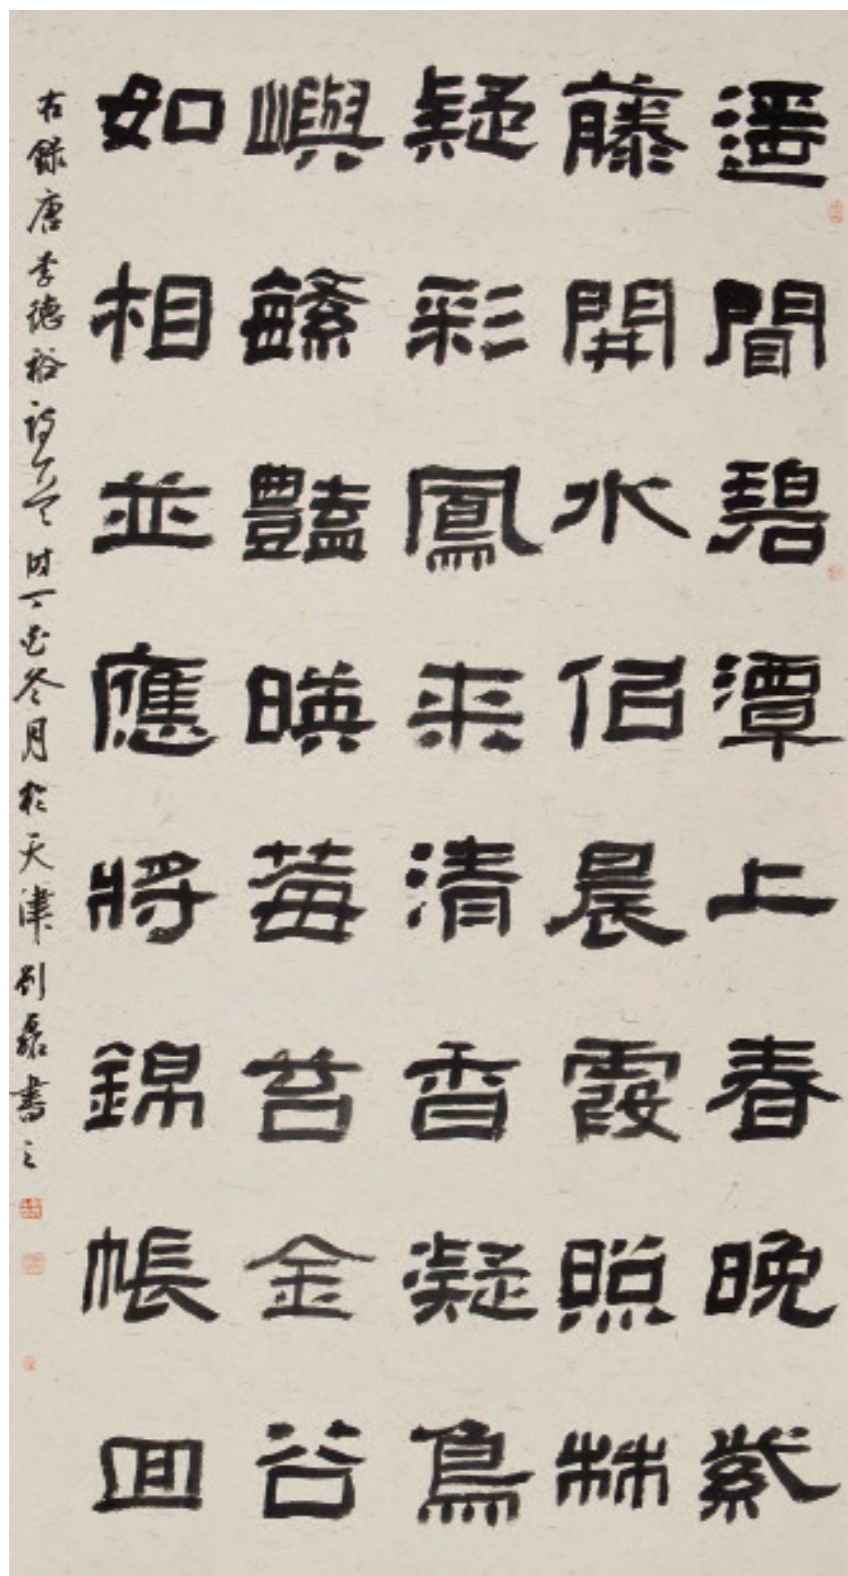 遥聞碧潭上春晚紫
藤開水佀晨霞照林
疑彩鳳来清香凝鳥
嶼繁豔暎莓苔金谷
如相並應將錦帳回
右録唐李德裕詩 时丁亥冬月於天津刘磊書之